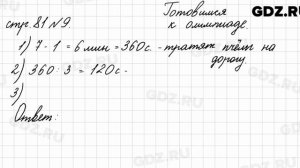 Готовимся
GDZ.RU
стр. 81 №9.
к олимпиаде.
1) 7 - 1 = 6 мин = 360 с. - тратят пчёлы на
дорогу
2) 360 : 3 = 120 с.
3)
Ответ:
GDZ.RU